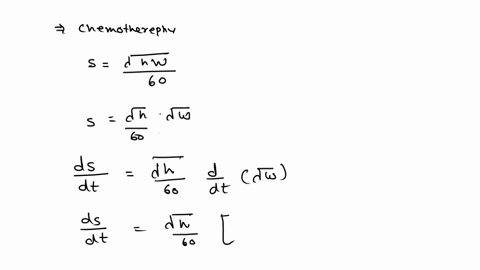 ⇒ Chemotherephy
s = √hw / 60
s = √h / 60 · √w
ds/dt = √h / 60 d/dt (√w)
ds/dt = √h / 60 [